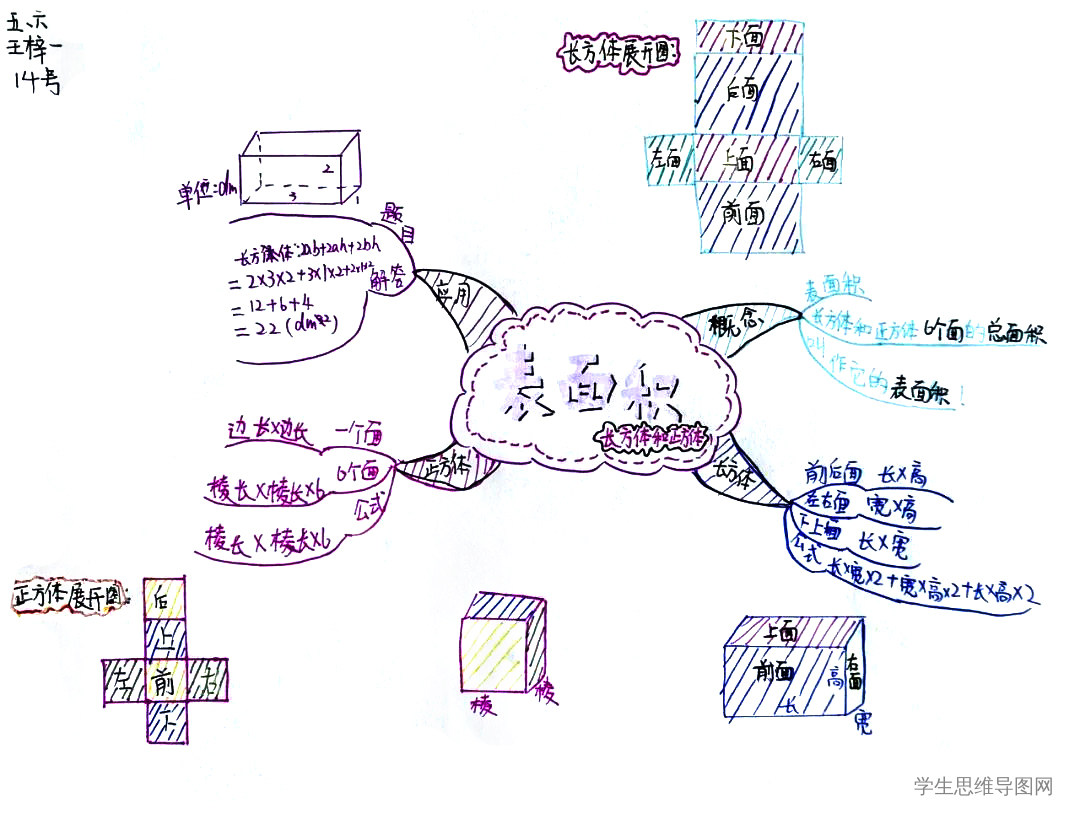 五、六
王梓一
14号
长方体展开图:
下面
后面
左面
上面
右面
前面
单位:dm
2
3
1
题目
长方体:2ab+2ah+2bh
=2×3×2+3×1×2+2×1×2
=12+6+4
=22(dm²)
解答
应用
概念
表面积
长方体和正方体6个面的总面积
叫作它的表面积!
表面积
长方体和正方体
正方体
边长×边长 一个面
棱长×棱长×6 6个面
棱长×棱长×6 公式
长方体
前后面 长×高
左右面 宽×高
下上面 长×宽
公式 长×宽×2+宽×高×2+长×高×2
正方体展开图:
后
上
左
前
右
下
棱
棱
上面
前面
右面
高
长
宽
学生思维导图网